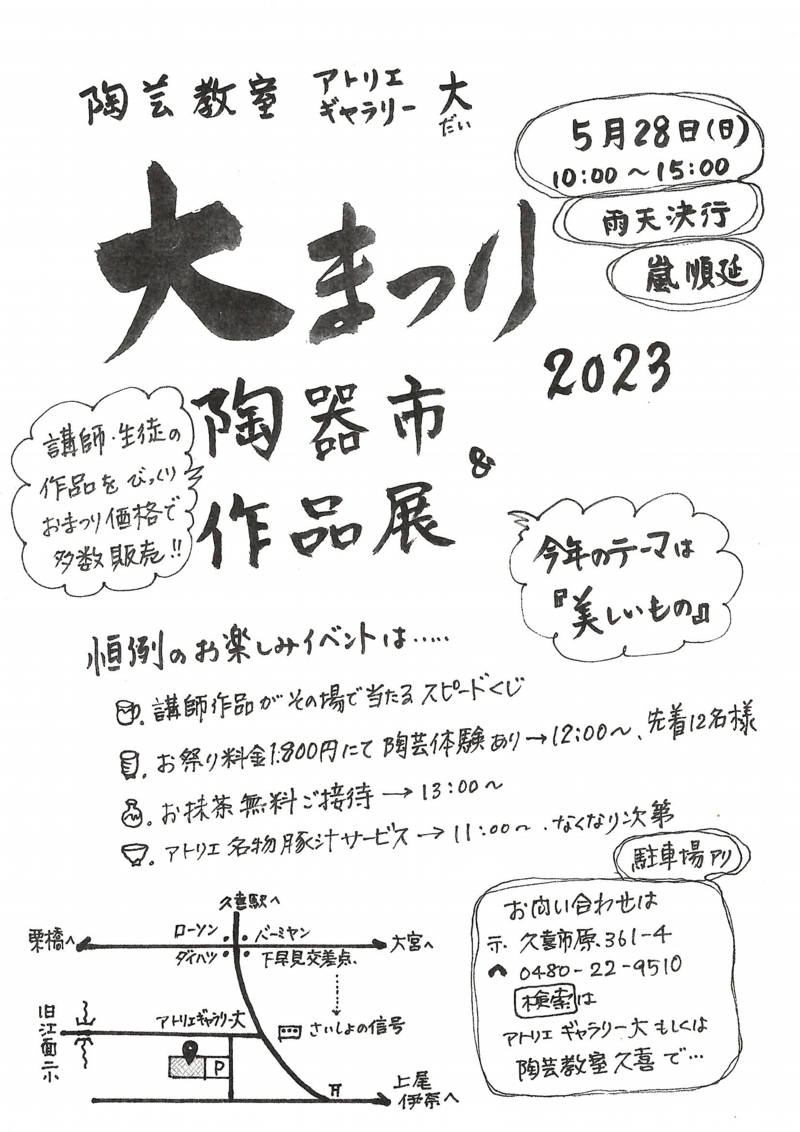 陶芸教室 アトリエ
ギャラリー 大
だい
5月28日(日)
10:00～15:00
雨天決行
嵐順延
大まつり
2023
陶器市
&
作品展
講師・生徒の
作品をびっくり
おまつり価格で
多数販売!!
今年のテーマは
『美しいもの』
恒例のお楽しみイベントは……
講師作品がその場で当たるスピードくじ
お祭り料金1.800円にて陶芸体験あり→12:00～、先着12名様
お抹茶無料ご接待→13:00～
アトリエ名物豚汁サービス→11:00～、なくなり次第
駐車場アリ
お問い合わせは
〒 久喜市原.361-4
0480-22-9510
検索は
アトリエギャラリー大もしくは
陶芸教室久喜で…
久喜駅へ
ローソン
バーミヤン
栗橋へ
大宮へ
ダイハツ
下早見交差点.
旧江面二小
アトリエギャラリー大
さいしょの信号
P
上尾
伊奈へ